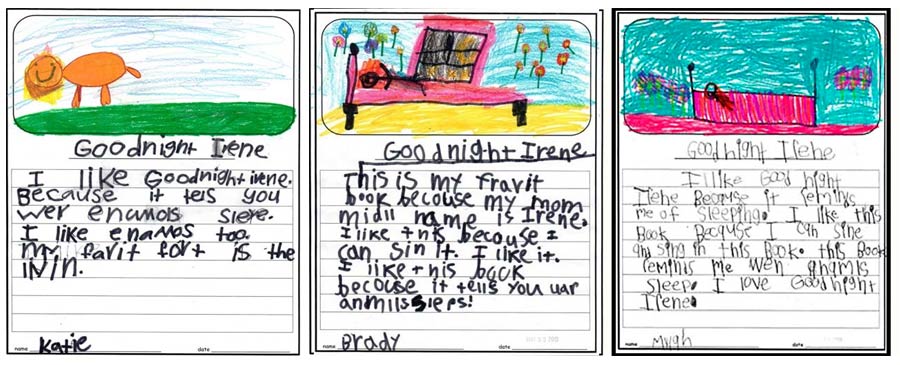 Goodnight Irene
I like Goodnight irene.
Because it tells you
wer enamols slere.
I like enamos too.
my favit fort is the
liVin.
name Katie date
Goodnight Irene
This is my fravit
book becouse my mom
midll name is Irene.
I like this becouse I
can sin it. I like it.
I like this back
becouse it tells you uar
anmils sleps!
name Brady date
Good night Irene
I like Good night
Irene Because it remins
me of sleeping. I like this
Book Because I can sine
and sing in this Book. this Book
reminis me wen anamls
sleep. I love Good night
Irene.
name date